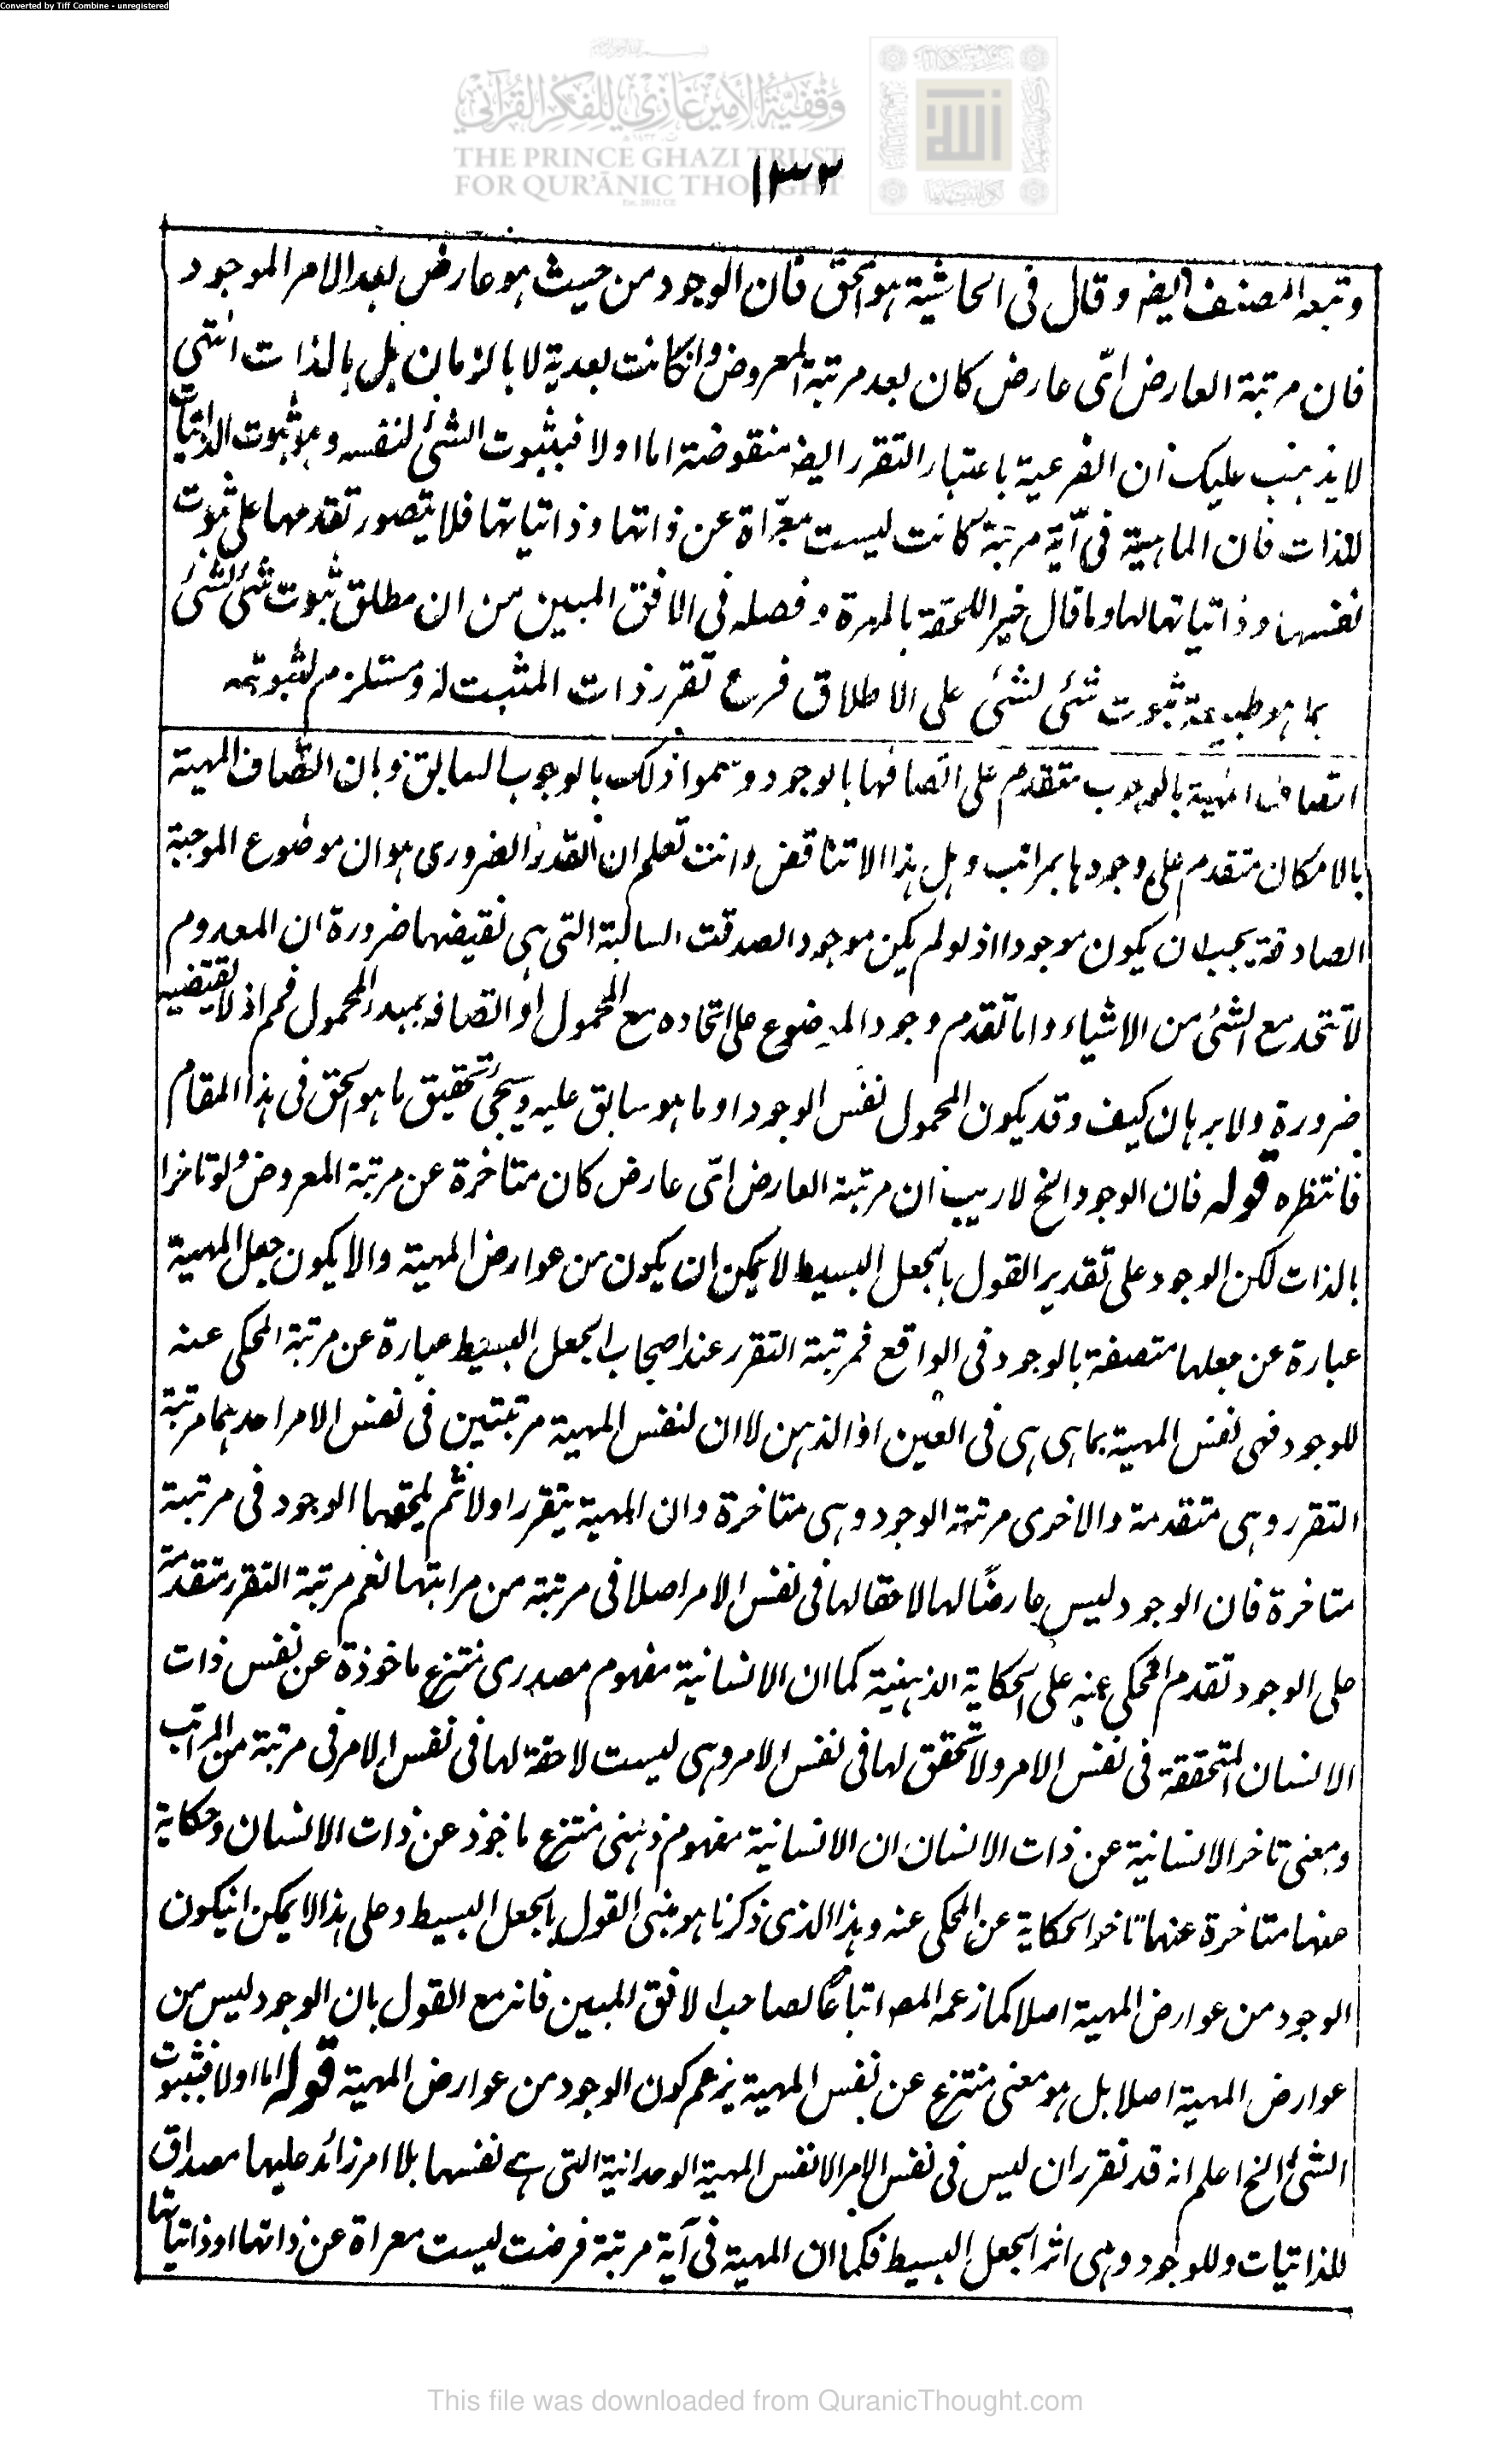 Converted by Tiff Combine - unregistered
وقفية الأمير غازي للفكر القرآني
THE PRINCE GHAZI TRUST
FOR QUR'ĀNIC THOUGHT
۱۳۳
وتبعه المصنف ايضر وقال فى الحاشية هو الحق فان الوجود من حيث هو عارض بعد الامر الموجود
فان مرتبة العارض اىّ عارض كان بعد مرتبة المعروض وانكانت بعدية لا بالزمان بل بالذات انتهى
لا يذهب عليك ان الفرعية باعتبار التقرر ايضر منقوضة اما اولا فبثبوت الشئ لنفسه وهو ثبوت الذاتيات
للذات فان الماهية فى اَيّة مرتبة كانت ليست معرّاة عن ذاتها وذاتياتها فلا يتصور تقدمها على ثبوت
نفسها وذاتياتها لها وما قال خير اللحقة بالمهرة وفصله فى الافق المبين من ان مطلق ثبوت شئ لشئ
بما هو طبيعة ثبوت شئ لشئ على الاطلاق فرع تقرر ذات المثبت له ومستلزم لثبوته
اتصاف المهية بالوجوب متقدم على اتصافها بالوجود وسموا ذلك بالوجوب السابق وبان اتصاف المهية
بالامكان متقدم على وجودها بمراتب وهل هذا الا تناقض وانت تعلم ان القدر الضرورى هو ان موضوع الموجبة
الصادقة يجب ان يكون موجودا اذ لو لم يكن موجود الصدقت السالبة التى هى نقيضها ضرورة ان المعدوم
لا تتحد مع الشئ من الاشياء واما تقدم وجود الموضوع على اتحاده مع المحمول او اتصافه بمبدء المحمول فمم اذ لا يقتضيه
ضرورة ولا برهان كيف وقد يكون المحمول نفس الوجود او ما هو سابق عليه وسيجئ تحقيق ما هو الحق فى هذا المقام
فانتظره قوله فان الوجود الخ لا ريب ان مرتبة العارض اىّ عارض كان متاخرة عن مرتبة المعروض ولو تاخرا
بالذات لكن الوجود على تقدير القول بالجعل البسيط لا يمكن ان يكون من عوارض المهية والا يكون جعل المهية
عبارة عن جعلها متصفة بالوجود فى الواقع فمرتبة التقرر عند اصحاب الجعل البسيط عبارة عن مرتبة المحكى عنه
للوجود فهى نفس المهية بما هى هى فى العين او الذهن لا ان لنفس المهية مرتبتين فى نفس الامر احدهما مرتبة
التقرر وهى متقدمة والاخرى مرتبة الوجود وهى متاخرة وان المهية يتقرر اولا ثم يلحقها الوجود فى مرتبة
متاخرة فان الوجود ليس عارضًا لها لاحقا لها فى نفس الامر اصلا فى مرتبة من مراتبها نعم مرتبة التقرر متقدمة
على الوجود تقدم المحكى عنه على الحكاية الذهنية كما ان الانسانية مفهوم مصدرى منتزع ماخوذة عن نفس ذات
الانسان المتحققة فى نفس الامر ولا تحقق لها فى نفس الامر وهى ليست لاحقة لها فى نفس الامر فى مرتبة من المراتب
ومعنى تاخر الانسانية عن ذات الانسان ان الانسانية مفهوم ذهنى منتزع ماخوذ عن ذات الانسان وحكاية
عنها متاخرة عنها تاخر الحكاية عن المحكى عنه وهذا الذى ذكرنا هو مبنى القول بالجعل البسيط وعلى هذا لا يمكن انيكون
الوجود من عوارض المهية اصلا كما زعمه المصر اتباعًا لصاحب الافق المبين فانه مع القول بان الوجود ليس من
عوارض المهية اصلا بل هو معنى منتزع عن نفس المهية يزعم كون الوجود من عوارض المهية قوله اما اولا فبثبوت
الشئ الخ اعلم انه قد تقرر ان ليس فى نفس الامر الا نفس المهية الوحدانية التى هى نفسها بلا امر زائد عليها مصداق
للذاتيات وللوجود وهى اثر الجعل البسيط فكما ان المهية فى اَية مرتبة فرضت ليست معراة عن ذاتها او ذاتياتها
This file was downloaded from QuranicThought.com